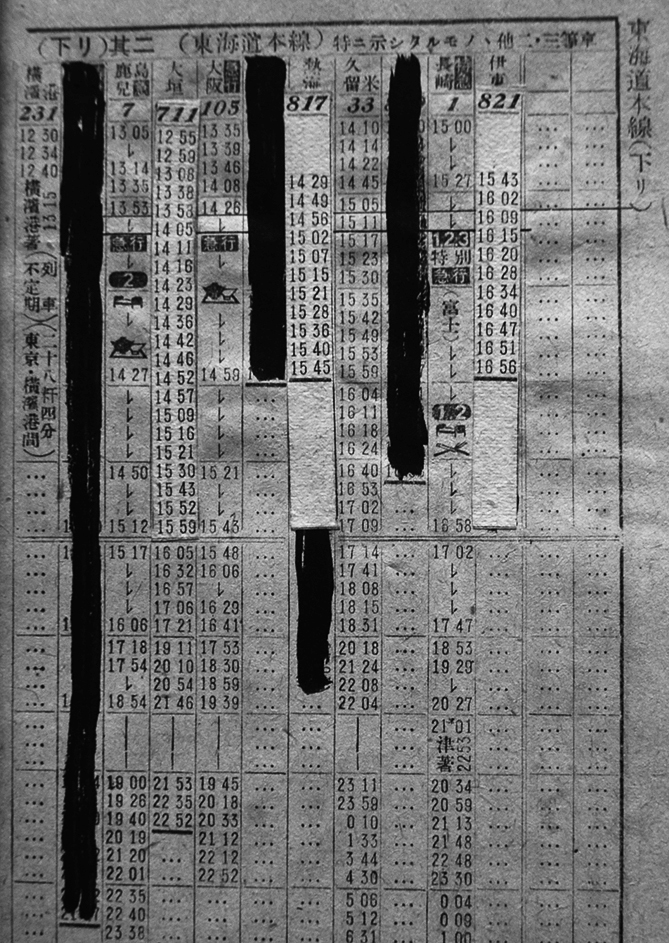 東海道本線(下リ)
(下リ)其二 (東海道本線)特ニ示シタルモノヽ他、二.三等車
横濱港
231
12 30
12 34
12 40
横濱港著 13 15
(不定期列車)
(東京・横濱港間二十八粁四分)
鹿兒島
7
13 05
13 14
13 35
13 53
急行
2
14 27
14 50
15 12
15 17
16 06
17 18
17 54
18 54
19 00
19 26
19 40
20 19
21 20
22 01
22 35
22 40
23 38
大垣
711
12 55
12 59
13 08
13 38
13 53
14 05
14 11
14 16
14 23
14 29
14 36
14 42
14 46
14 52
14 57
15 09
15 16
15 21
15 30
15 43
15 52
15 59
16 05
16 32
16 57
17 06
17 21
19 11
20 10
20 54
21 46
21 53
22 35
22 52
大阪
急行
105
13 35
13 39
13 46
14 08
14 26
急行
14 59
15 21
15 43
15 48
16 06
16 29
16 41
17 53
18 30
18 59
19 39
19 45
20 18
20 33
21 12
22 12
22 52
熱海
817
14 29
14 49
14 56
15 02
15 07
15 15
15 21
15 28
15 36
15 40
15 45
久留米
33
14 10
14 14
14 22
14 45
15 05
15 11
15 17
15 23
15 30
15 35
15 42
15 49
15 53
15 59
16 04
16 11
16 18
16 24
16 40
16 53
17 02
17 09
17 14
17 41
18 08
18 15
18 31
20 18
21 24
22 08
22 04
23 11
23 59
0 10
1 33
3 44
4 30
5 06
5 12
6 31
長崎
特急
1
15 00
15 27
1.2.3
特別
急行
(富士)
1.2
16 58
17 02
17 47
18 53
19 29
20 27
21 01
津著 22 53
20 34
20 59
21 13
21 48
22 48
23 30
0 04
0 09
1 00
伊東
821
15 43
16 02
16 09
16 15
16 20
16 28
16 34
16 40
16 47
16 51
16 56